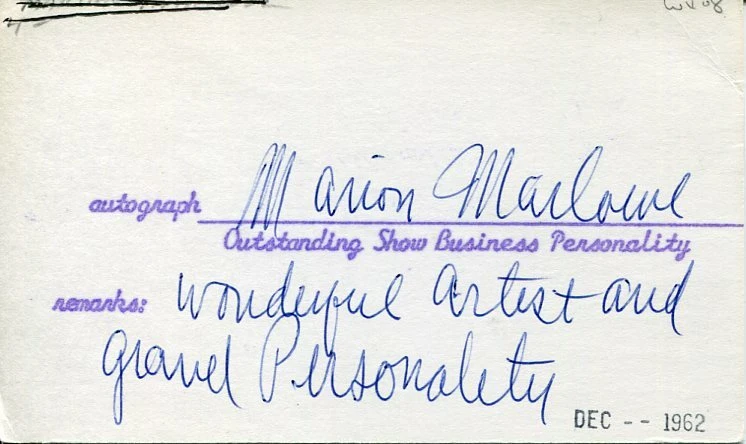 autograph Marion Marlowe
Outstanding Show Business Personality
remarks: Wonderful Artist and
Grand Personality
DEC -- 1962